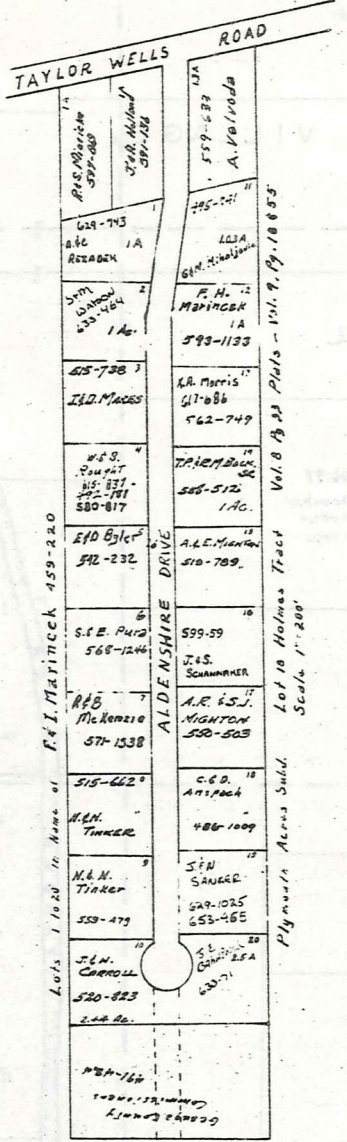 TAYLOR WELLS ROAD
1A
R.&S. Mlaricho
J.&R. Holland
591-136
13A
559-633
A. Valvoda
1
629-743
A.&C 1A
REZABEK
11
495-741
1.03A
G&M. Mihaljevic
2
WATSON
633-464
1 Ac.
F. H. 12
Marincek
1A
593-1133
515-738 3
I&D. MARES
13
R.A. Morris
617-686
562-749
4
W.&S.
Pought
615-837
492-181
580-817
14
T.P.&R.M. Bock,
SR
1 Ac.
E&D Byler 5
542-232
15
A.&E. MIGHTON
510-789
6
S.&E. Pura
568-1246
16
599-59
J.&S.
SCHANNAKER
R&B 7
McKenzie
571-1538
17
A.R. & S.J.
MIGHTON
550-503
515-662 8
N.&N.
TINKER
C.&D. 18
Anspach
486-1009
9
N.&N.
Tinker
559-479
19
J.&N
SANGER
629-1025
653-465
10
J.&N.
CARROLL
520-823
2.44 Ac.
20
2.5A
633-71
ALDENSHIRE DRIVE
Geauga County
Commissioners
Lots 1 to 20 In Name of F.& I. Marincek 459-220
Plymouth Acres Subd. Lot 10 Holmes Tract Vol. 8 Pg 33 Plats - Vol. 9, Pg. 10 & 55
Scale 1"-200'